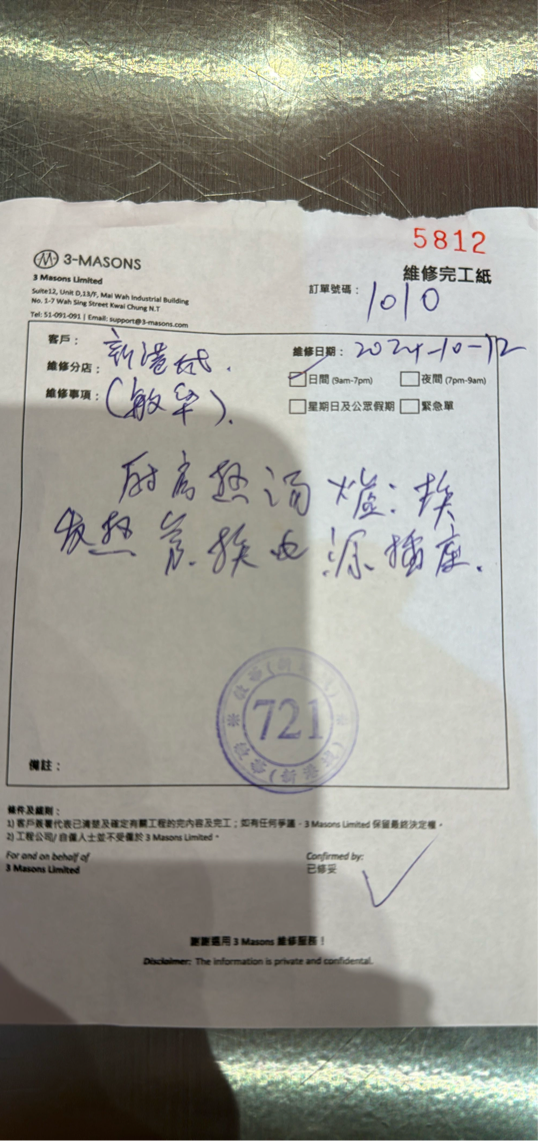 5812
3-MASONS
維修完工紙
3 Masons Limited
Suite12, Unit D,13/F, Mai Wah Industrial Building
No. 1-7 Wah Sing Street Kwai Chung N.T
Tel: 51-091-091 | Email: support@3-masons.com
訂單號碼: 1010
客戶: 新港城.
維修日期: 2024-10-12
維修分店: (敏華).
日間 (9am-7pm) 夜間 (7pm-9am)
維修事項:
星期日及公眾假期 緊急單
厨房熱湯爐: 换
发热管换电源插座.
721
(新港城)
備註:
條件及細則:
1) 客戶簽署代表已清楚及確定有關工程的完內容及完工; 如有任何爭議, 3 Masons Limited 保留最終決定權。
2) 工程公司/ 自僱人士並不受僱於 3 Masons Limited。
For and on behalf of
3 Masons Limited
Confirmed by:
已修妥
謝謝選用 3 Masons 維修服務!
Disclaimer: The information is private and confidental.